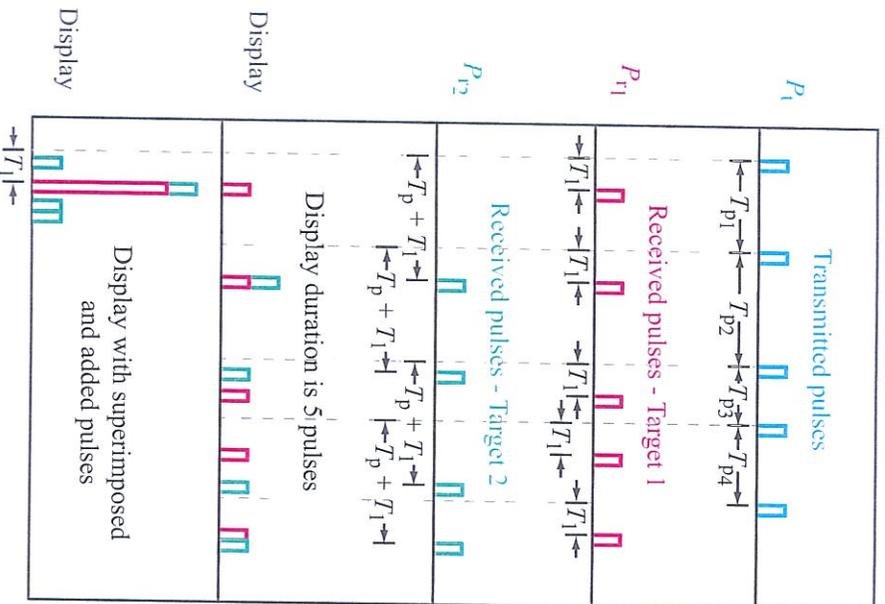 Transmitted pulses
Pt
Tp1 Tp2 Tp3 Tp4
Received pulses - Target 1
Pr1
T1 T1 T1 T1 T1
Received pulses - Target 2
Pr2
Tp + T1 Tp + T1
Tp + T1 Tp + T1
Display duration is 5 pulses
Display
Display with superimposed
and added pulses
Display
T1